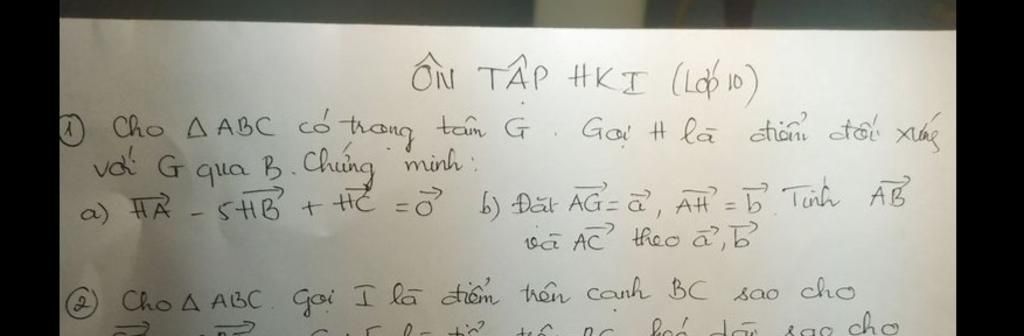 ÔN TẬP HKI (Lớp 10)
① Cho △ ABC có trọng tâm G. Gọi H là điểm đối xứng
với G qua B. Chứng minh:
a) \overrightarrow{HA} - 5\overrightarrow{HB} + \overrightarrow{HC} = \vec{0} b) Đặt \overrightarrow{AG} = \vec{a}, \overrightarrow{AH} = \vec{b}. Tính \overrightarrow{AB}
và \overrightarrow{AC} theo \vec{a}, \vec{b}
② Cho △ ABC. Gọi I là điểm trên cạnh BC sao cho
sao cho